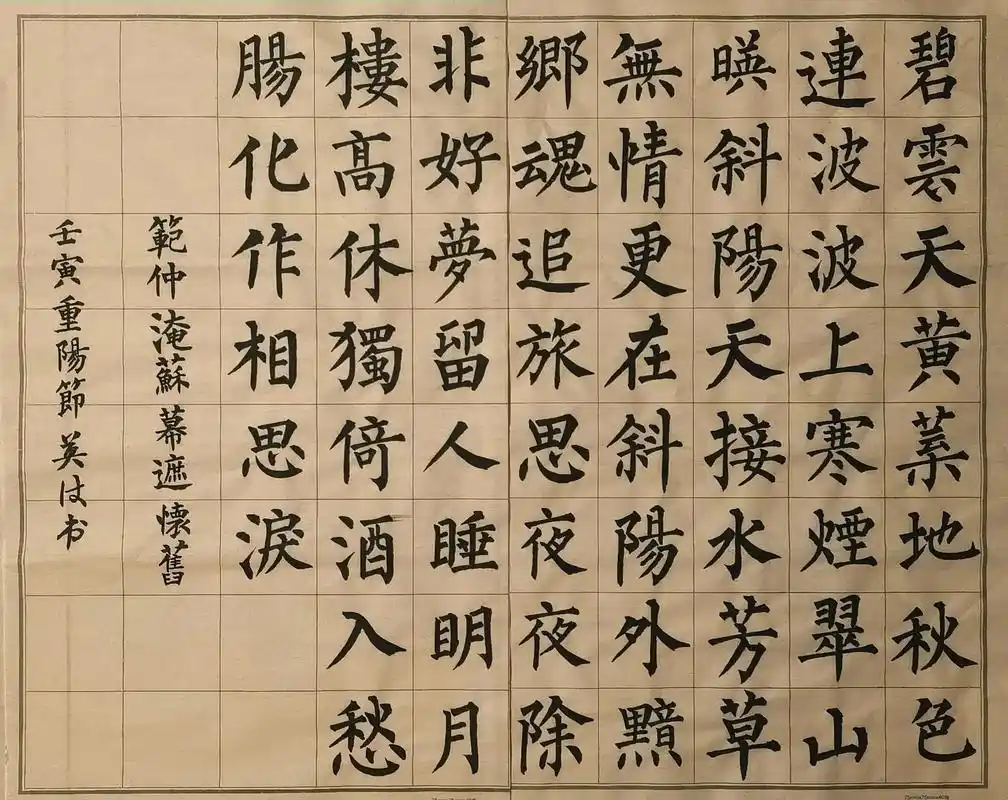 碧雲天黄葉地秋色
連波波上寒煙翠山
暎斜陽天接水芳草
無情更在斜陽外黯
鄉魂追旅思夜夜除
非好夢留人睡眀月
樓髙休獨倚酒入愁
腸化作相思淚
範仲淹蘇幕遮懷舊
壬寅重陽節英书